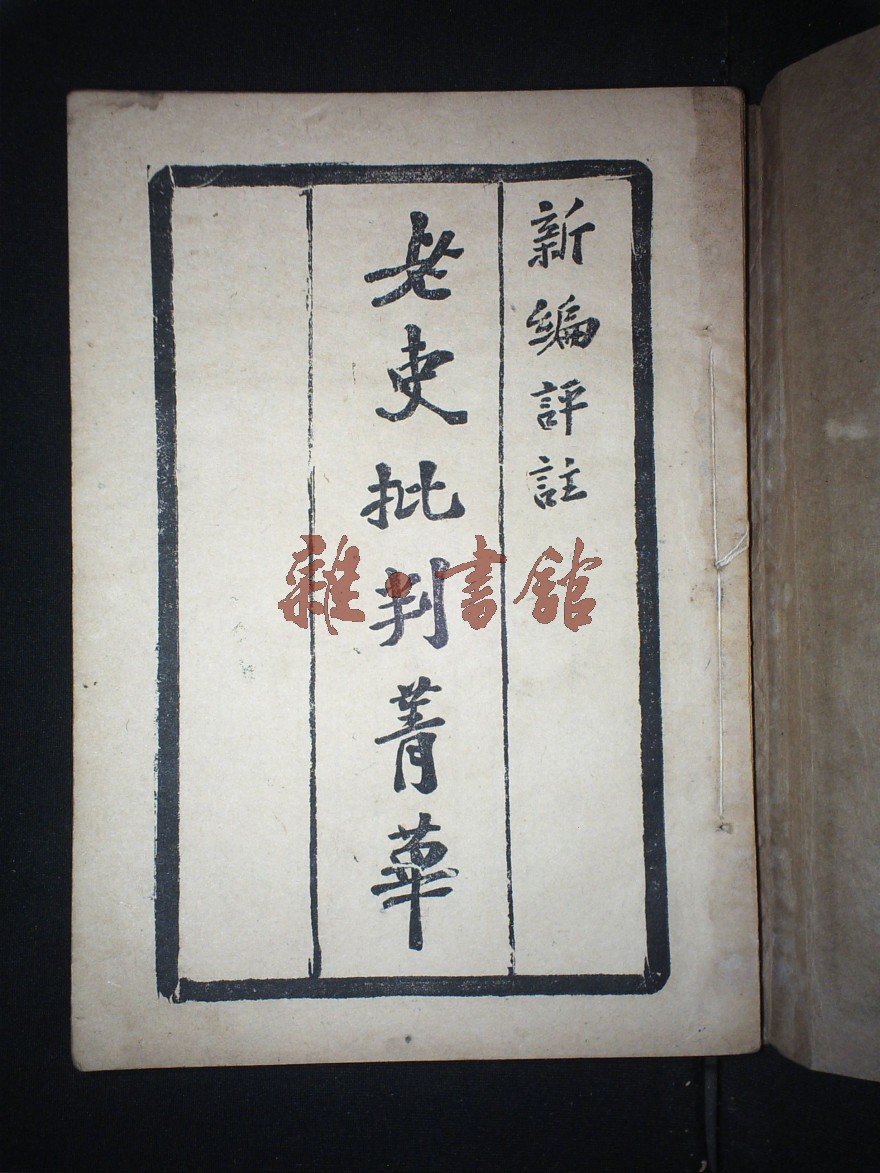 新編評註
老吏批判菁華
雜·書館